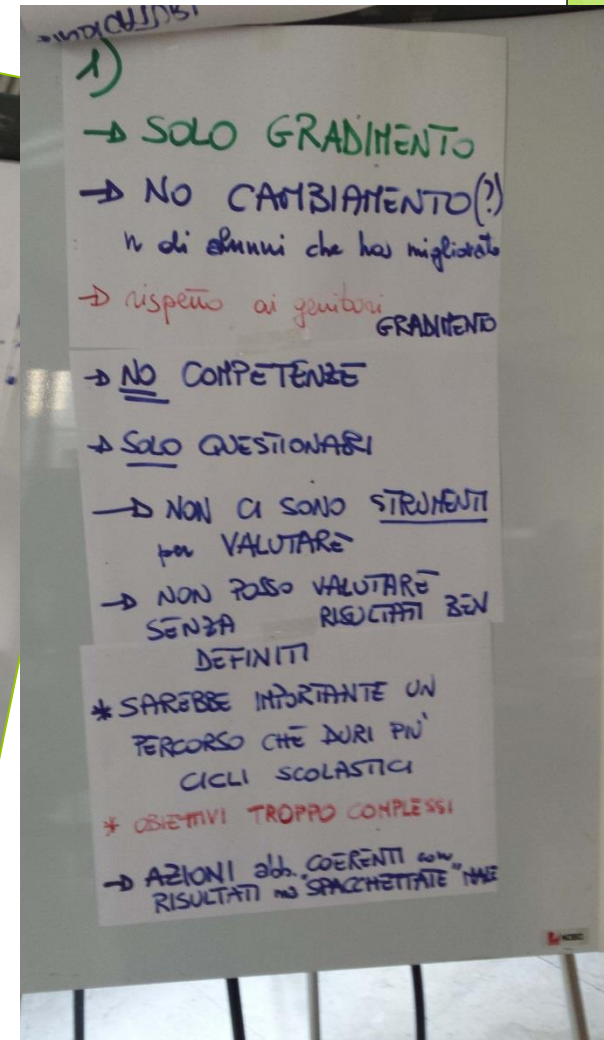 INDICATORI
1)
→ SOLO GRADIMENTO
→ NO CAMBIAMENTO(?)
n di alunni che has migliorato
→ rispetto ai genitori
GRADIMENTO
→ NO COMPETENZE
→ SOLO QUESTIONARI
→ NON CI SONO STRUMENTI
per VALUTARE
→ NON POSSO VALUTARE
SENZA RISULTATI BEN
DEFINITI
* SAREBBE IMPORTANTE UN
PERCORSO CHE DURI PIU'
CICLI SCOLASTICI
* OBIETTIVI TROPPO COMPLESSI
→ AZIONI abb. COERENTI con
RISULTATI ma "SPACCHETTATE" MALE
NOBO